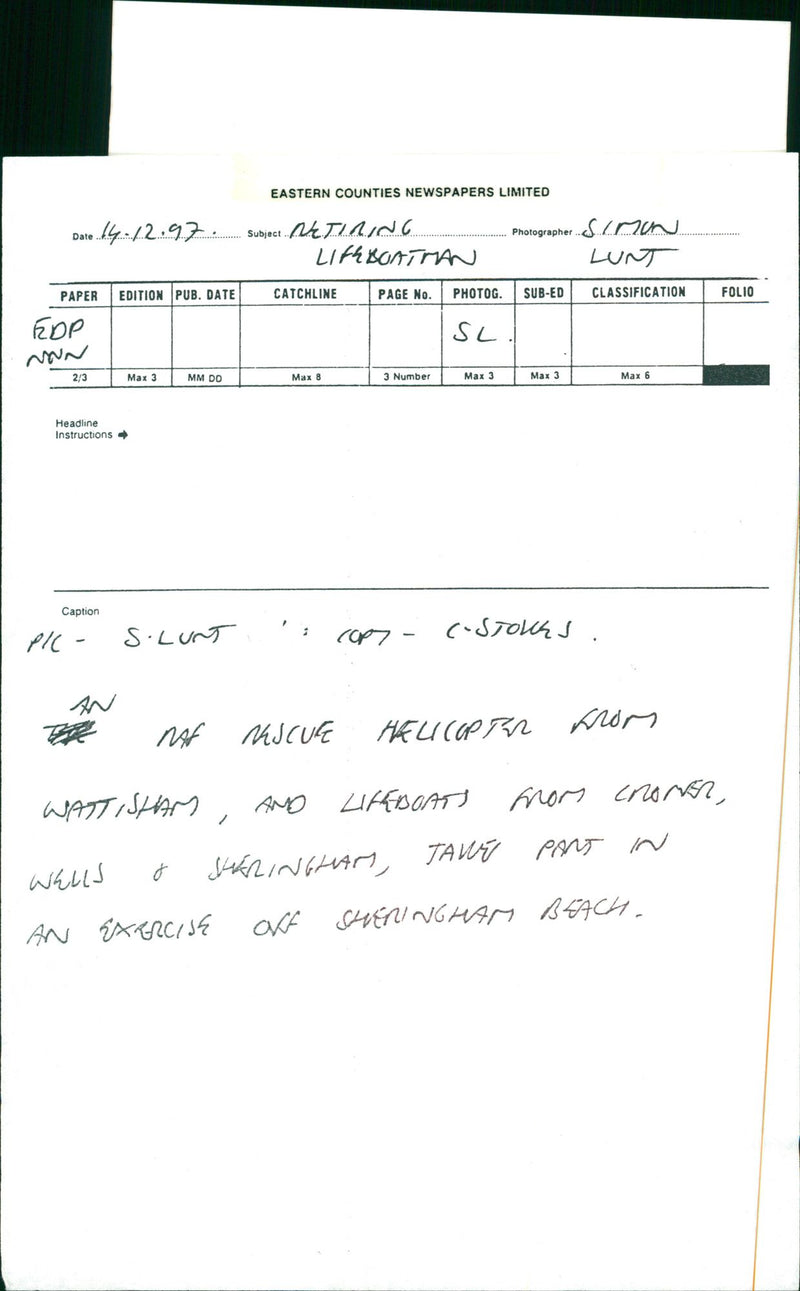 EASTERN COUNTIES NEWSPAPERS LIMITED
Date 14.12.97. Subject RETIRING Photographer SIMON
LIFEBOATMAN LUNT
PAPER EDITION PUB. DATE CATCHLINE PAGE No. PHOTOG. SUB-ED CLASSIFICATION FOLIO
EDP SL.
NNN
2/3 Max 3 MM DD Max 8 3 Number Max 3 Max 3 Max 6
Headline
Instructions ➔
Caption
PIC - S.LUNT ' : COPY - C.STOKES.
AN
RAF RESCUE HELICOPTER FROM
WATTISHAM, AND LIFEBOATS FROM CROMER,
WELLS & SHERINGHAM, TAKE PART IN
AN EXERCISE OFF SHERINGHAM BEACH.